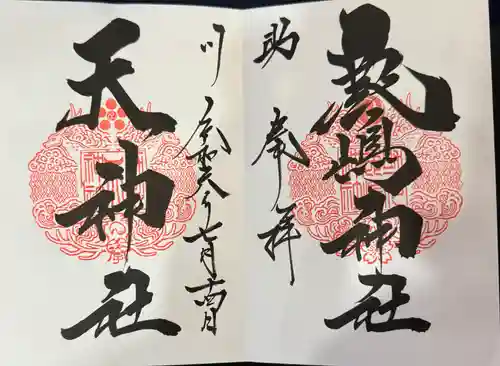 厳嶋神社
助 奉拝
川 令和六年七月十四日
天神社